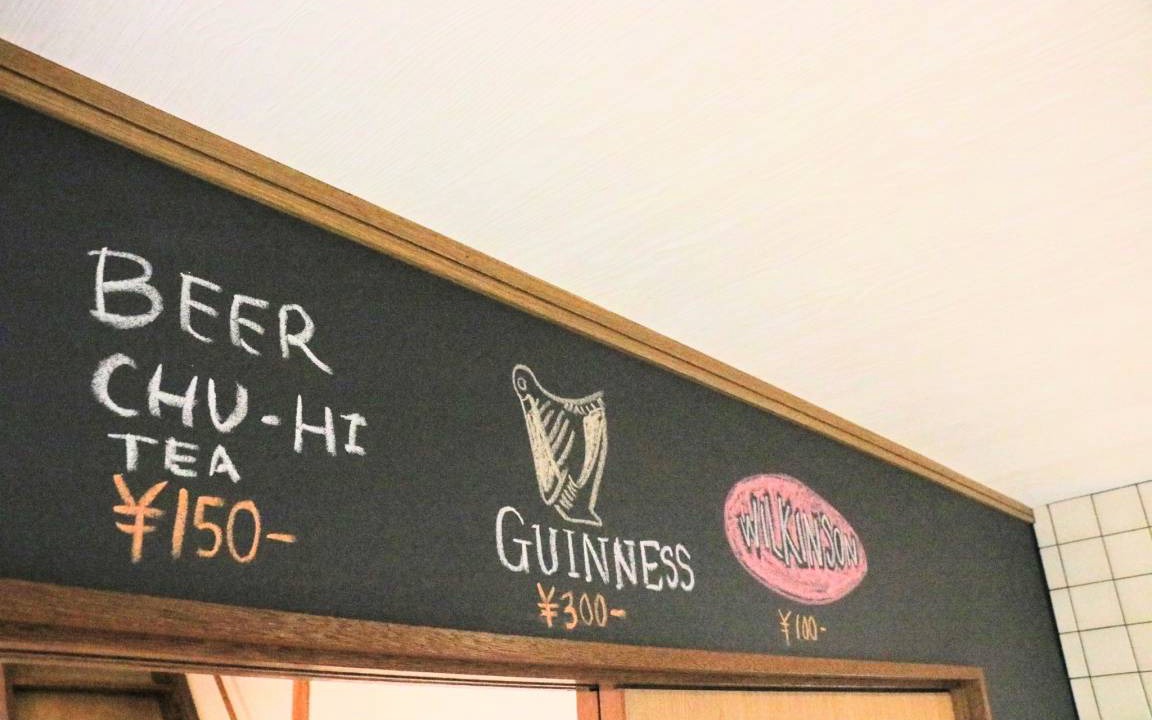 BEER
CHU-HI
TEA
¥150-
GUINNESS
¥300-
WILKINSON
¥100-